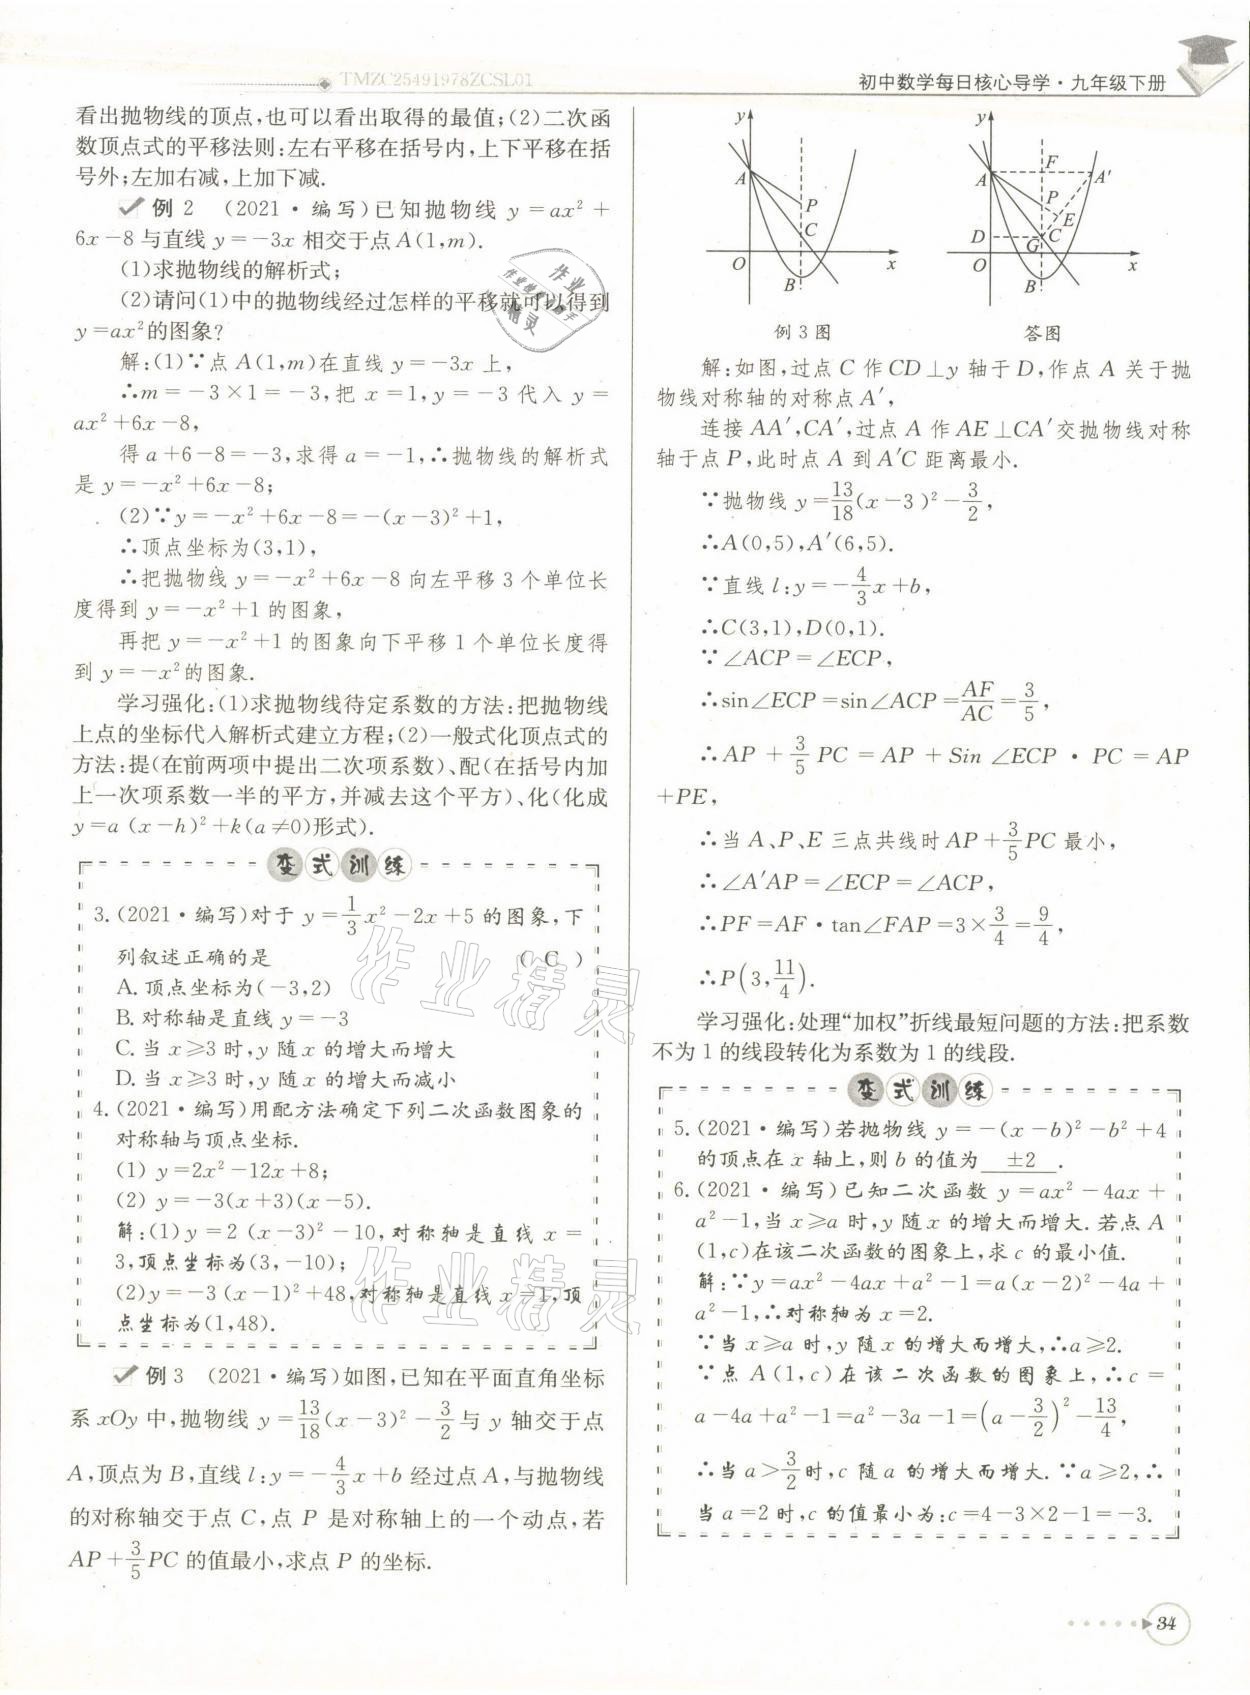 TMZC25491978ZCSL01
初中数学每日核心导学·九年级下册
看出抛物线的顶点,也可以看出取得的最值;(2)二次函
数顶点式的平移法则:左右平移在括号内,上下平移在括
号外;左加右减,上加下减.
例2 (2021·编写)已知抛物线 y=ax²+
6x-8与直线 y=-3x 相交于点A(1,m).
(1)求抛物线的解析式;
(2)请问(1)中的抛物线经过怎样的平移就可以得到
y=ax²的图象?
解:(1)∵点 A(1,m)在直线 y=-3x 上,
∴m=-3×1=-3,把 x=1,y=-3 代入 y=
ax²+6x-8,
得a+6-8=-3,求得a=-1,∴抛物线的解析式
是 y=-x²+6x-8;
(2)∵y=-x²+6x-8=-(x-3)²+1,
∴顶点坐标为(3,1),
∴把抛物线 y=-x²+6x-8 向左平移 3 个单位长
度得到 y=-x²+1 的图象,
再把 y=-x²+1 的图象向下平移 1 个单位长度得
到 y=-x²的图象.
学习强化:(1)求抛物线待定系数的方法:把抛物线
上点的坐标代入解析式建立方程;(2)一般式化顶点式的
方法:提(在前两项中提出二次项系数)、配(在括号内加
上一次项系数一半的平方,并减去这个平方)、化(化成
y=a (x-h)²+k(a≠0)形式).
变式训练
3. (2021·编写)对于 y=1/3x²-2x+5 的图象,下
列叙述正确的是 ( C )
A. 顶点坐标为(-3,2)
B. 对称轴是直线 y=-3
C. 当 x≥3 时,y 随 x 的增大而增大
D. 当 x≥3 时,y 随 x 的增大而减小
4. (2021·编写)用配方法确定下列二次函数图象的
对称轴与顶点坐标.
(1) y=2x²-12x+8;
(2) y=-3(x+3)(x-5).
解:(1)y=2 (x-3)²-10,对称轴是直线 x=
3,顶点坐标为(3,-10);
(2)y=-3 (x-1)²+48,对称轴是直线 x=1,顶
点坐标为(1,48).
例3 (2021·编写)如图,已知在平面直角坐标
系 xOy 中,抛物线 y=13/18(x-3)²-3/2与 y 轴交于点
A,顶点为 B,直线 l:y=-4/3x+b 经过点 A,与抛物线
的对称轴交于点 C,点 P 是对称轴上的一个动点,若
AP+3/5PC 的值最小,求点 P 的坐标.
y
A
P
C
O
B
x
例 3 图
y
F
A
A′
P
E
D
G
C
O
B
x
答图
解:如图,过点 C 作 CD⊥y 轴于 D,作点 A 关于抛
物线对称轴的对称点 A′,
连接 AA′,CA′,过点 A 作 AE⊥CA′交抛物线对称
轴于点 P,此时点 A 到 A′C 距离最小.
∵抛物线 y=13/18(x-3)²-3/2,
∴A(0,5),A′(6,5).
∵直线 l:y=-4/3x+b,
∴C(3,1),D(0,1).
∵∠ACP=∠ECP,
∴sin∠ECP=sin∠ACP=AF/AC=3/5,
∴AP+3/5PC=AP+Sin∠ECP·PC=AP
+PE,
∴当 A、P、E 三点共线时 AP+3/5PC 最小,
∴∠A′AP=∠ECP=∠ACP,
∴PF=AF·tan∠FAP=3×3/4=9/4,
∴P(3,11/4).
学习强化:处理“加权”折线最短问题的方法:把系数
不为 1 的线段转化为系数为 1 的线段.
变式训练
5. (2021·编写)若抛物线 y=-(x-b)²-b²+4
的顶点在 x 轴上,则 b 的值为 ±2 .
6. (2021·编写)已知二次函数 y=ax²-4ax+
a²-1,当 x≥a 时,y 随 x 的增大而增大. 若点 A
(1,c)在该二次函数的图象上,求 c 的最小值.
解:∵y=ax²-4ax+a²-1=a(x-2)²-4a+
a²-1,∴对称轴为 x=2.
∵当 x≥a 时,y 随 x 的增大而增大,∴a≥2.
∵点 A(1,c)在该二次函数的图象上,∴c=
a-4a+a²-1=a²-3a-1=(a-3/2)²-13/4,
∴当a>3/2时,c 随 a 的增大而增大.∵a≥2,∴
当 a=2 时,c 的值最小为:c=4-3×2-1=-3.
34
作业精灵
作业精灵